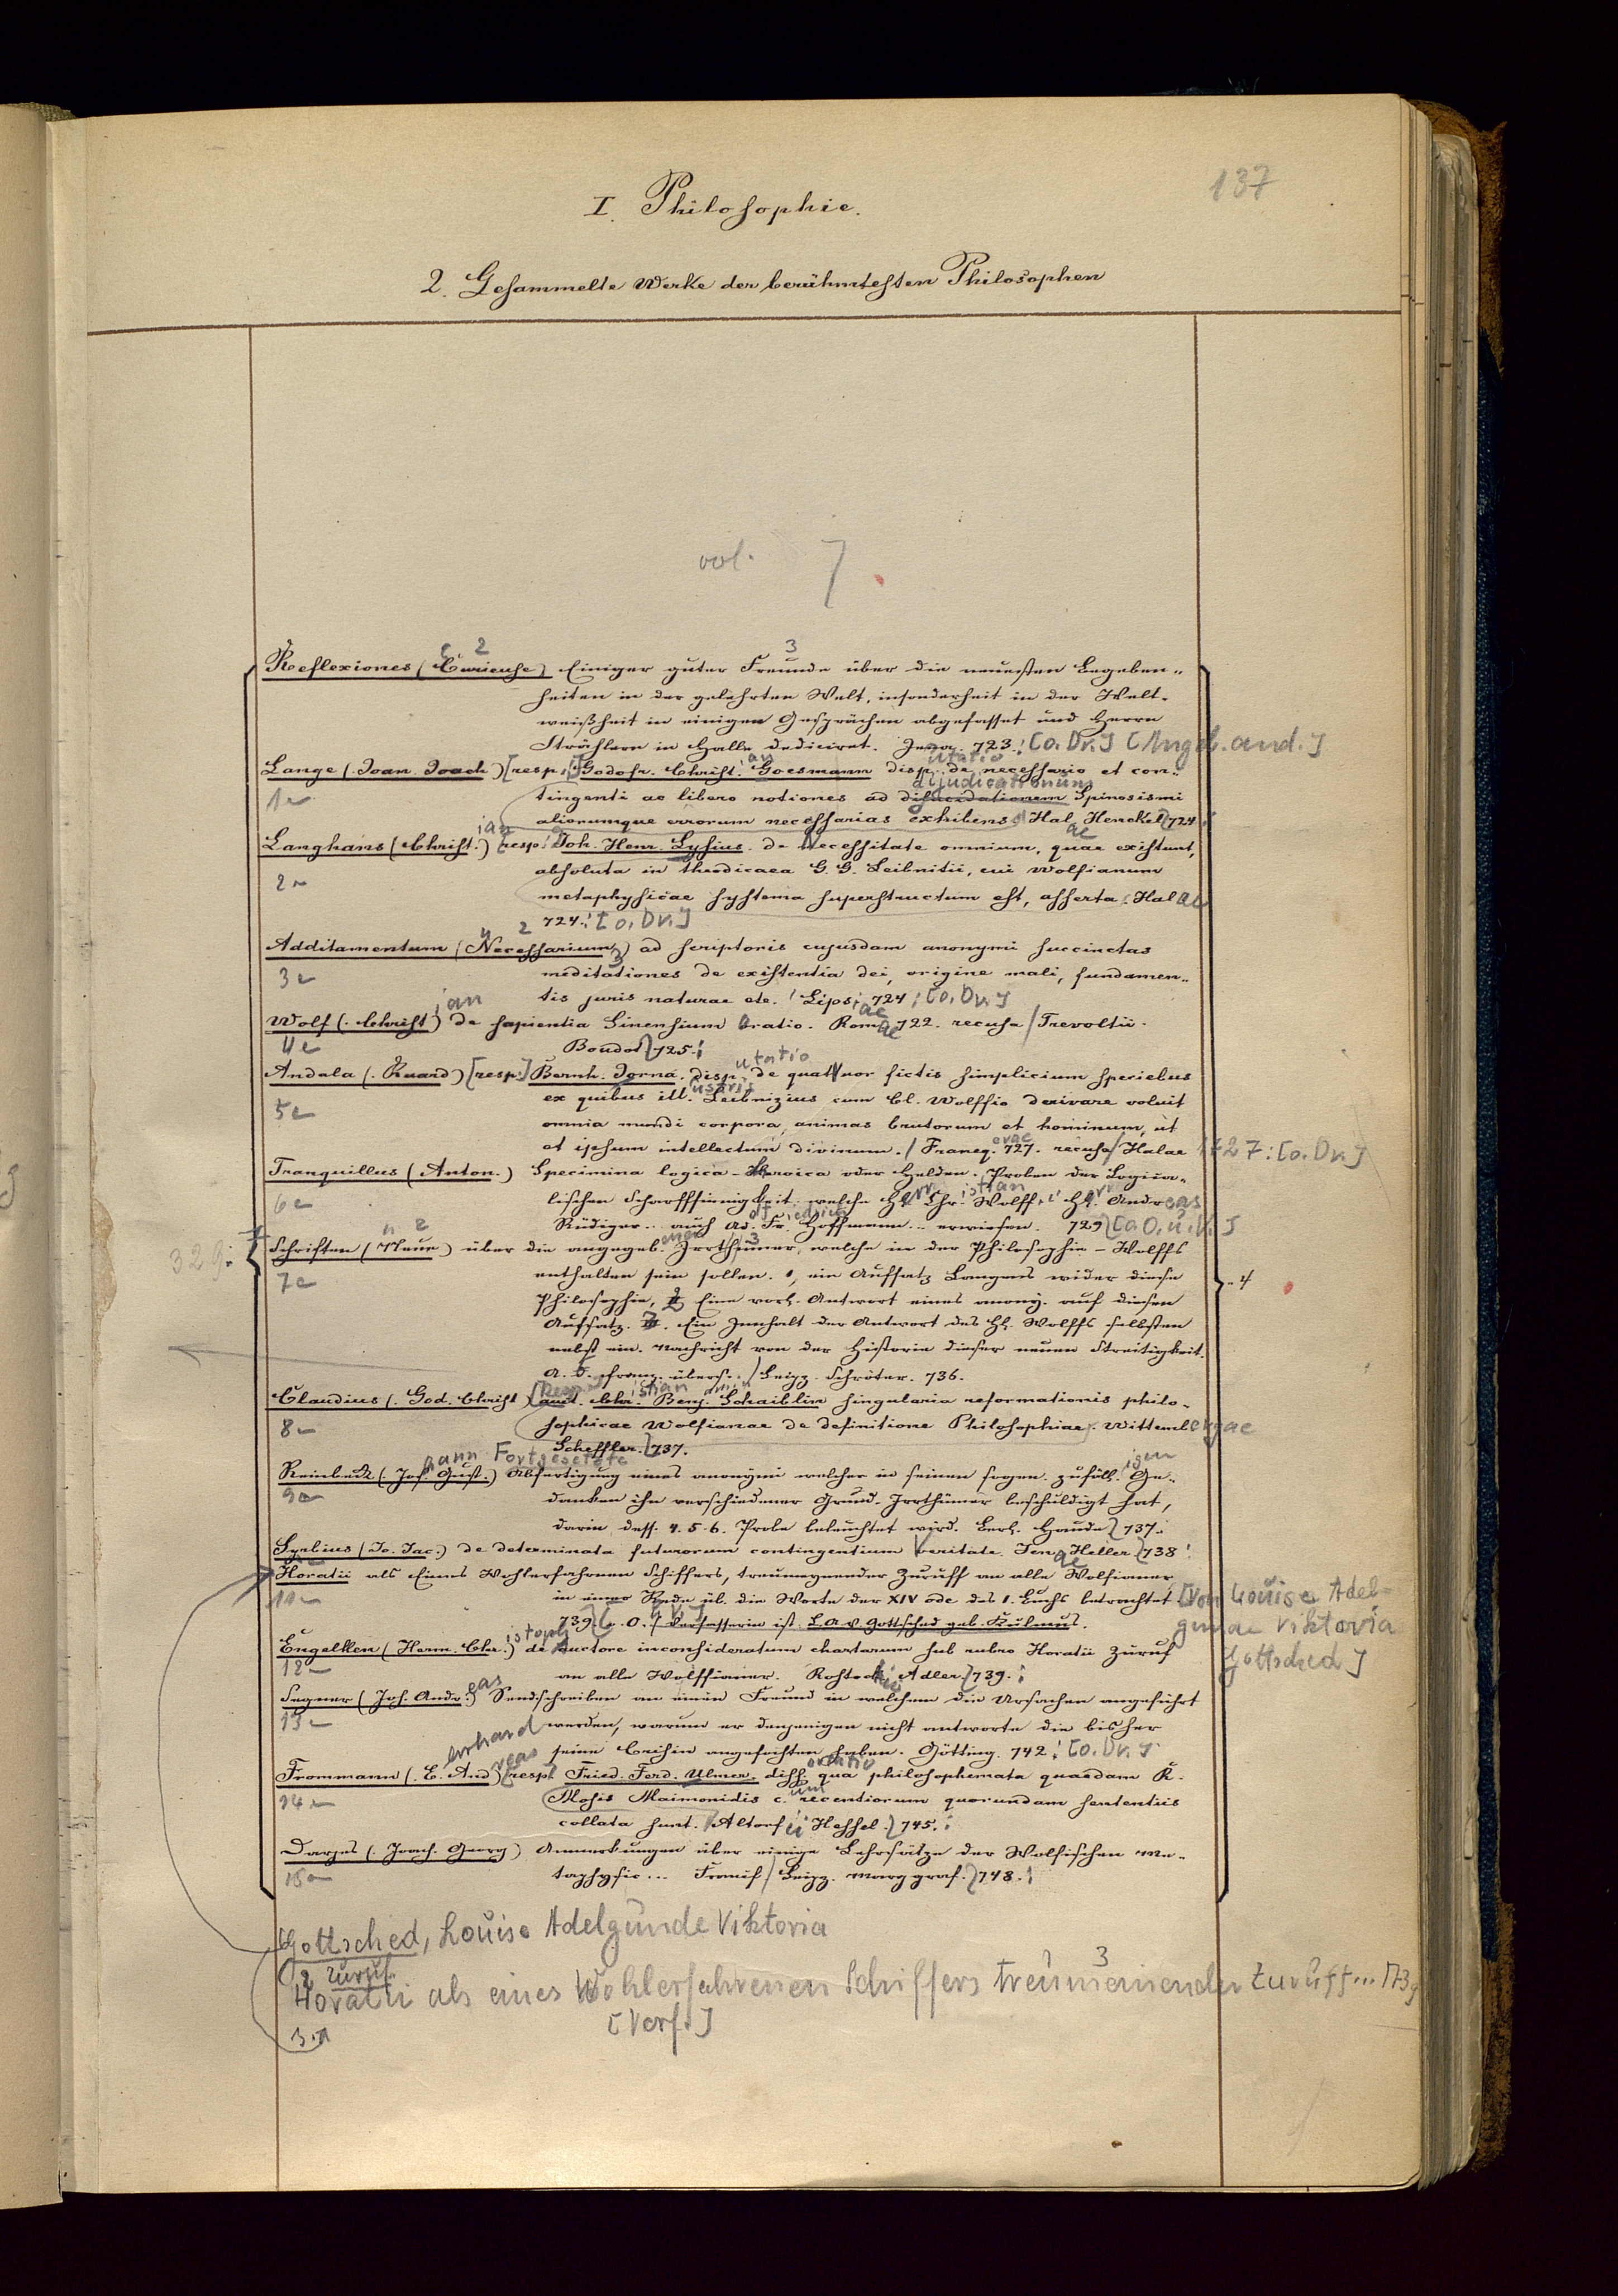 137
I. Philosophie.
2. Gesammelte Werke der berühmtesten Philosophen
vol. 7.
Reflexiones (Curieuse) Einiger guter Freunde über die neuesten Begeben-
heiten in der gelehrten Welt, insonderheit in der Welt-
weißheit in einigen Gesprächen abgefasset und Herrn
Strählern in Halle dediciret. Jena. 723. [o. Dr.] [Angeb. and.]
Lange (Joan. Joach) [resp. Godofr. Christ. Goesmann disputatio de necessario et con-
1 tingenti ac libero notiones ad dijudicationum Spinosismi
aliorumque errorum necessarias exhibens. Hal. Henckel 724
Langhans (Christian) [resp. Joh. Henr. Lysius. de Necessitate omnium, quae existunt,
2 absoluta in theodicaea G. G. Leibnitii, cui Wolfianum
metaphysicae systema superstructum est, asserta. Halae
724. [o. Dr.]
Additamentum (Necessarium) ad scriptoris cujusdam anonymi succinctas
3 meditationes de existentia dei, origine mali, fundamen-
tis juris naturae etc. Lipsiae 724. [o. Dr.]
Wolf (Christian) de sapientia Sinensium Oratio. Romae 722. recusa / Trevoltii.
4 Boudot 725.
Andala (Ruard) [resp.] Bernh. Idema. disputatio de quatuor fictis simplicium speciebus
5 ex quibus illustris Leibnizius cum Cl. Wolffio derivare voluit
omnia mundi corpora, animas brutorum et hominum, ut
et ipsum intellectum divinum. / Franeq. 727. recusa / Halae 1727: [o. Dr.]
Tranquillus (Anton.) Specimina logica-heroica oder Helden-Proben der Logica-
6 lischen Scharffsinnigkeit welche Herr Christian Wolff, Herr Andreas
Rüdiger.. auch Ad. Friedrich Hoffmann.. erwiesen. 729 [a O. u. V.]
329.
Schriften (Neue) über die angegebenen Irrthümer, welche in der Philosophie-Wolffs
7 enthalten sein sollen. 1, ein Aufsatz Langens wider diese
- 4
Philosophie, 2 Eine vorl. Antwort eines anony. auf diesen
Aufsatz. 3. Ein Innhalt der Antwort des Hh. Wolffs selbsten
nebst ein. Nachricht von der Historie dieser neuen Streitigkeit.
a. d. franz. übers.. / Leipz. Schröter. 736.
Claudius (God. Christ) Christian Benjamin Schaiblin singularia reformationis philo-
8 sophicae Wolfianae de definitione Philosophiae. Wittembergae
Scheffler. 737.
Reinbeck (Johann Gust.) Fortgesetzte Abfertigung eines anonymi welcher in seinen sogen. zufälligen Ge-
9 danken ihn verschiedener Grund-Irrthümer beschuldigt hat,
darin dess. 4. 5. 6. Probe beleuchtet wird. Berl. Haude 737.
Syrbius (Jo. Jac.) de determinata futurorum contingentium Veritate. Jenae Heller 738
Horatii als Eines Wohlerfahrnen Schiffers, treumeynender Zuruff an alle Wolfianer
11 in einer Rede üb. die Worte der XIV ode des 1. Buchs betrachtet [Von Louise Adel-
739. [o. O. / Verfasserin ist L. A. v. Gottsched geb. Kulmus. gunde Viktoria
Engelken (Herm. Christoph) de auctore inconsideratum chartarum sub rubro Horatii Zuruf Gottsched]
12 an alle Wolffianer. Rostochii Adler. 739.
Segner (Joh. Andreas) Sendschreiben an einen Freund in welchem die Ursachen angeführt
13 werden, warum er denjenigen nicht antworte die bisher
seine Crisin angefochten haben. Götting. 742. [o. Dr.]
Frommann (Erhard Andreas) [resp. Fried. Ferd. Ulmer. diss. qua philosophemata quaedam R.
14 Mosis Maimonidis cum recentiorum quorundam sententiis
collata sunt. Altorfii Hessel. 745.
Darjes (Joach. Georg) Anmerkungen über einige Lehrsätze der Wolfischen Me-
15 taphysic... Francf / Leipz. Marggraf. 748.
Gottsched, Louise Adelgunde Viktoria
Zuruf
Horatii als eines Wohlerfahrenen Schiffers treumeinender Zuruff... 1739
[Verf.]